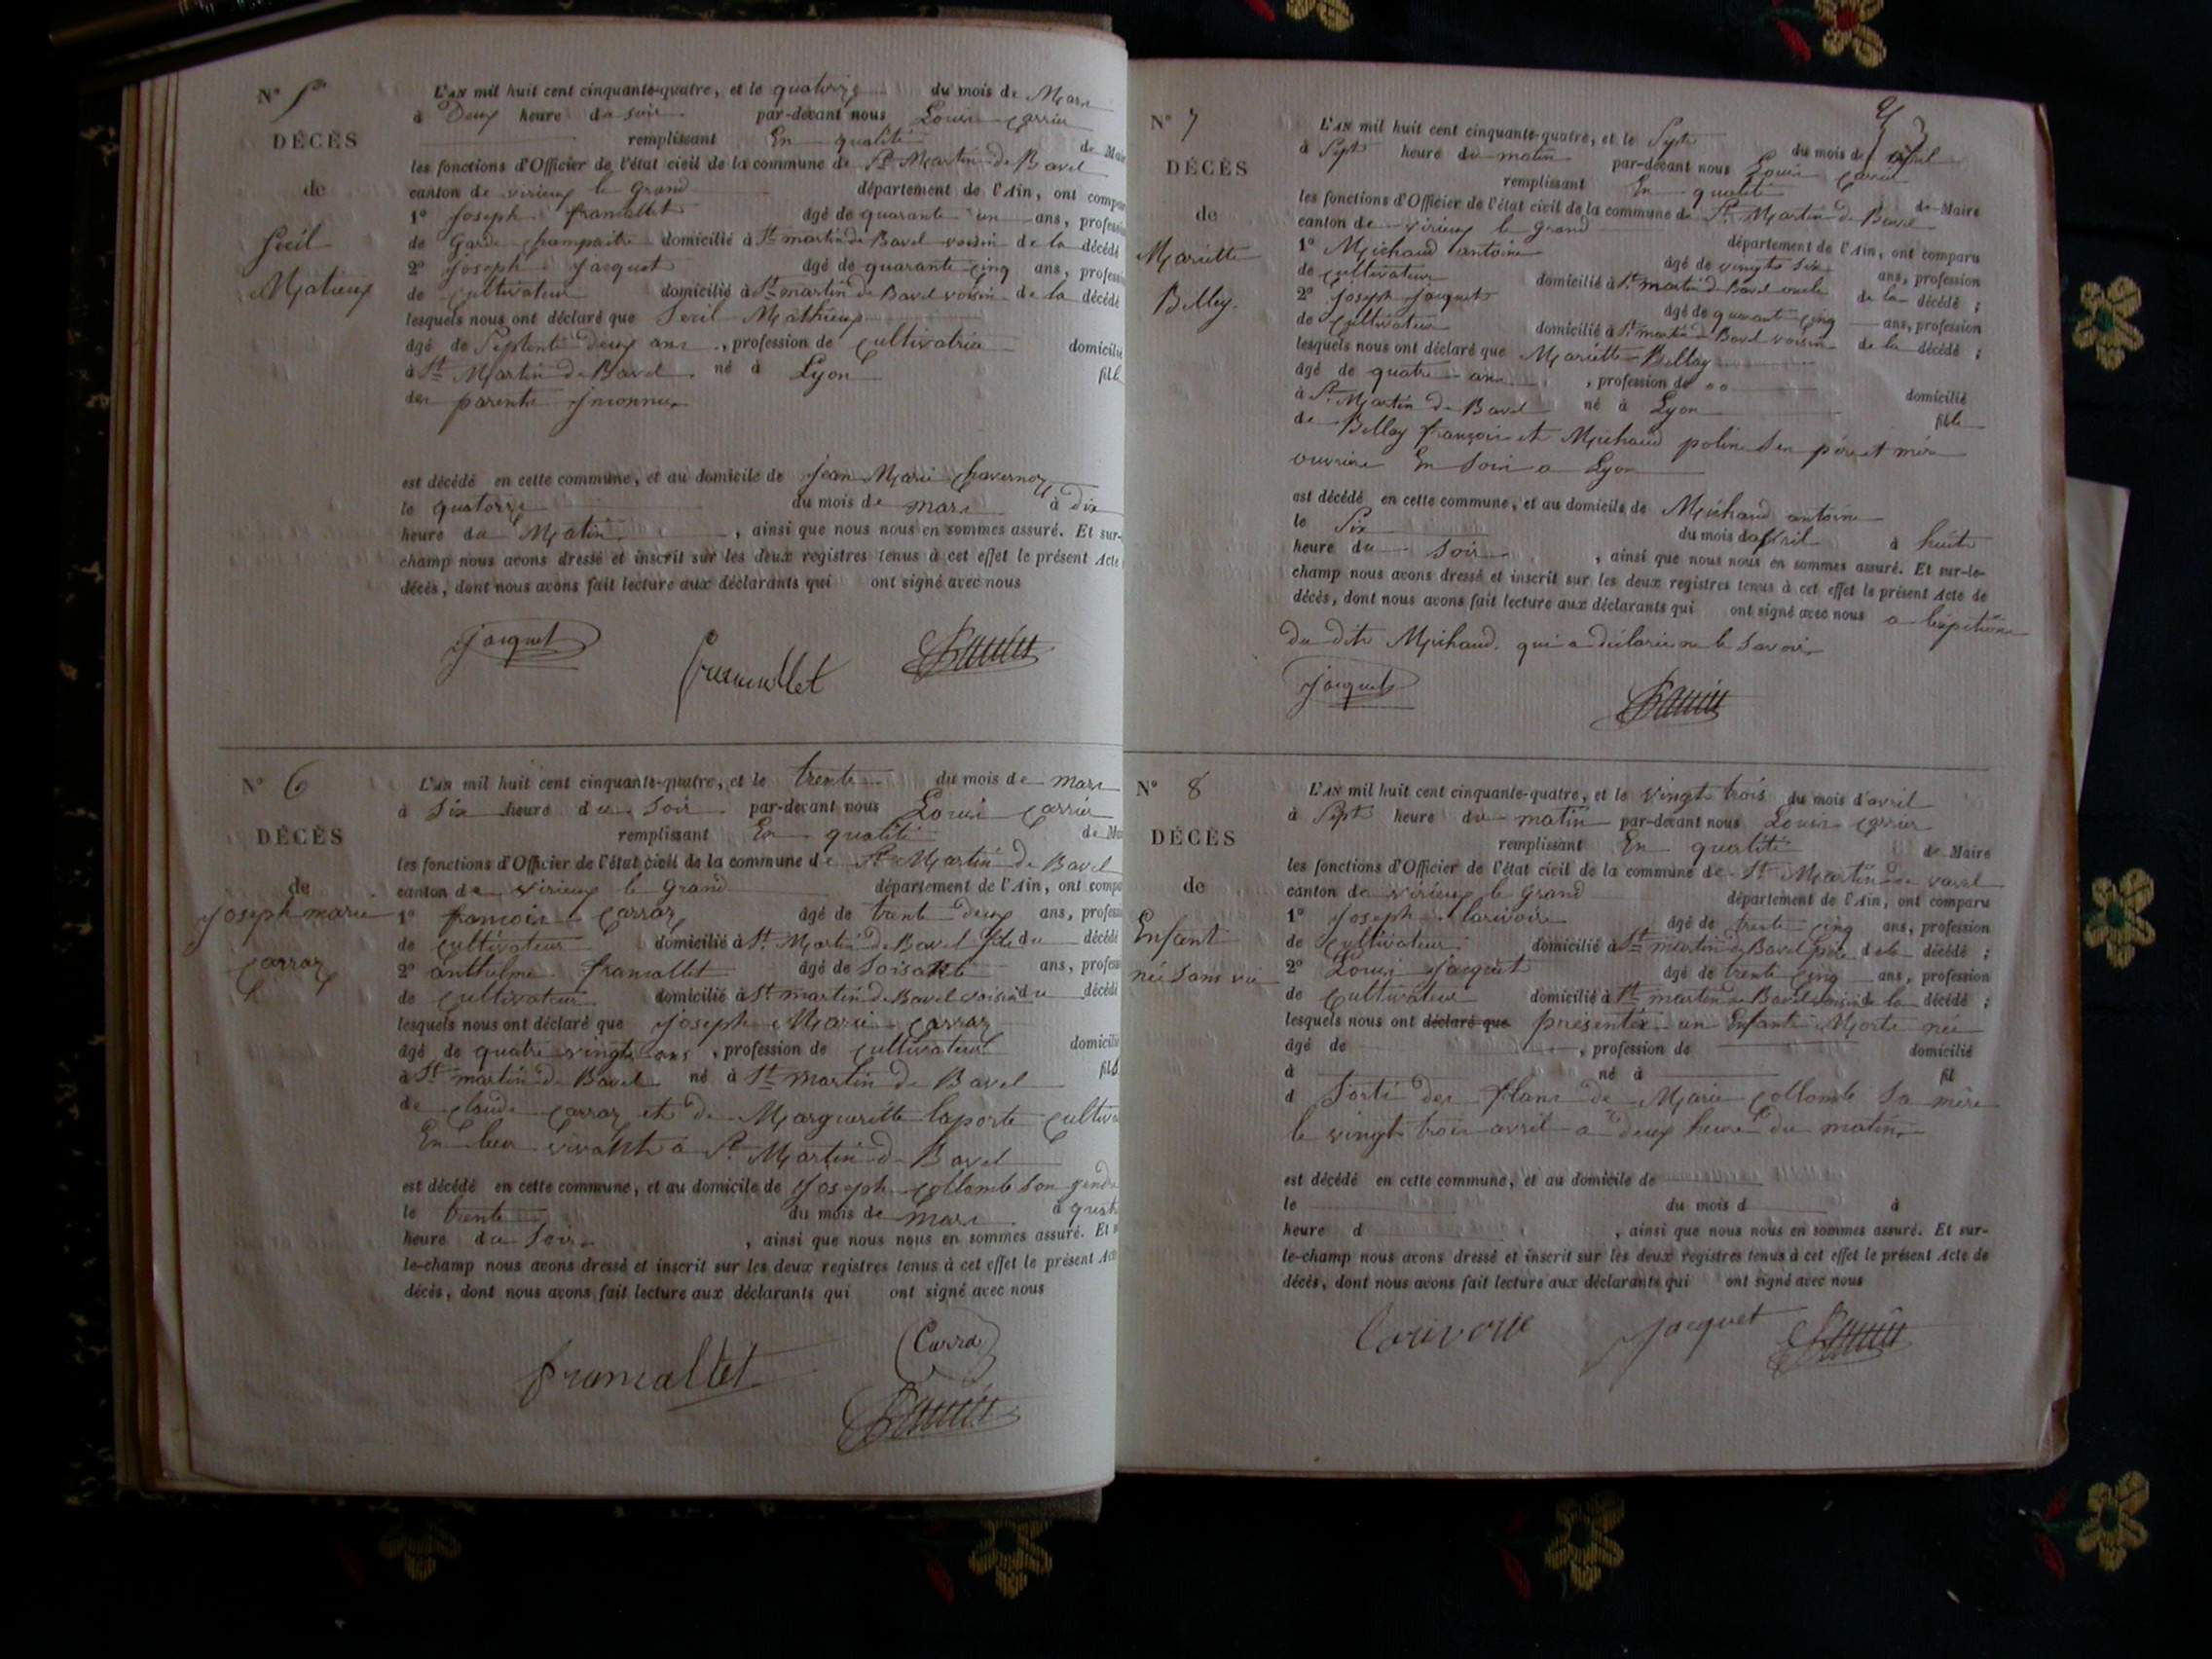 N° 5
DÉCÈS
de
Secil
Matieux
L'AN mil huit cent cinquante-quatre, et le quatorze du mois de Mars
à Deux heure du soir par-devant nous Louis Carrier
remplissant En qualité de Mai
les fonctions d'Officier de l'état civil de la commune de St Martin de Bavel
canton de virieux le grand département de l'Ain, ont compa
1° Joseph framallet âgé de quarante un ans, professi
de Garde champaitre domicilié à St martin de Bavel voisin de la décédé
2° Joseph Jacquet âgé de quarante cinq ans, professi
de cultivateur domicilié à St martin de Bavel voisin de la décédé
lesquels nous ont déclaré que Secil Mathieux
âgé de Septente deux ans, profession de cultivatrice domicilié
à St Martin de Bavel né à Lyon fille
des parents inconnus
est décédé en cette commune, et au domicile de Jean Marie Chavernoz
le quatorze du mois de mars à dix
heure du Matin, ainsi que nous nous en sommes assuré. Et sur-
champ nous avons dressé et inscrit sur les deux registres tenus à cet effet le présent Acte
décès, dont nous avons fait lecture aux déclarants qui ont signé avec nous
Jacquet
framallet
N° 6
DÉCÈS
de
Joseph marie
Carraz
L'AN mil huit cent cinquante-quatre, et le trente du mois de mars
à Six heure du Soir par-devant nous Louis Carrier
remplissant En qualité de Ma
les fonctions d'Officier de l'état civil de la commune de St Martin de Bavel
canton de virieux le Grand département de l'Ain, ont compa
1° francois Carraz âgé de trente deux ans, profess
de cultivateur domicilié à St Martin de Bavel fils du décédé
2° anthelme framallet âgé de Soisante ans, profess
de cultivateur domicilié à St martin de Bavel voisin du décédé
lesquels nous ont déclaré que Joseph Marie Carraz
âgé de quatre vingts ans, profession de cultivateur domicilié
à St martin de Bavel né à St martin de Bavel fils
de claude Carraz et de Marguerite laporte cultiva
En leur vivant à St Martin de Bavel
est décédé en cette commune, et au domicile de Joseph Collomb Son gendr
le trente du mois de mars à quatr
heure du Soir, ainsi que nous nous en sommes assuré. Et
le-champ nous avons dressé et inscrit sur les deux registres tenus à cet effet le présent Acte
décès, dont nous avons fait lecture aux déclarants qui ont signé avec nous
framallet
Carra
N° 7
DÉCÈS
de
Mariette
Belley.
L'AN mil huit cent cinquante-quatre, et le Sept du mois de avril
à Sept heure du matin par-devant nous Louis Carrier
remplissant En qualité de Maire
les fonctions d'Officier de l'état civil de la commune de St Martin de Bavel
canton de virieux le grand département de l'Ain, ont comparu
1° Michaud antoine âgé de vingts six ans, profession
de cultivateur domicilié à St martin de Bavel oncle de la décédé ;
2° Joseph Jacquet âgé de quarante cinq ans, profession
de cultivateur domicilié à St martin de Bavel voisin de la décédé ;
lesquels nous ont déclaré que Mariette Bellay
âgé de quatre ans, profession de domicilié
à St Martin de Bavel né à Lyon fille
de Bellay françois et Michaud poline Ses père et mère
ouvriers En Soie a Lyon
est décédé en cette commune, et au domicile de Michaud antoine
le Six du mois d'avril à huite
heure du Soir, ainsi que nous nous en sommes assuré. Et sur-le-
champ nous avons dressé et inscrit sur les deux registres tenus à cet effet le présent Acte de
décès, dont nous avons fait lecture aux déclarants qui ont signé avec nous a l'exption
du dit Michaud qui a déclaré ne le Savoir
Jacquet
N° 8
DÉCÈS
de
Enfant
née Sans vie
L'AN mil huit cent cinquante-quatre, et le vingt trois du mois d'avril
à Sept heure du matin par-devant nous Louis Carrier
remplissant En qualité de Maire
les fonctions d'Officier de l'état civil de la commune de St Martin de vavel
canton de virieux le grand département de l'Ain, ont comparu
1° Joseph larivoire âgé de trente cinq ans, profession
de cultivateur domicilié à St martin de Bavel père de la décédé ;
2° Louis Jacquet âgé de trente cinq ans, profession
de cultivateur domicilié à St martin de Bavel voisin de la décédé ;
lesquels nous ont déclaré que présentés un Enfant Morte née
âgé de, profession de domicilié
à né à fil
d Sorti des flans de Marie Collomb Sa mère
le vingt trois avril a deux heure du matin
est décédé en cette commune, et au domicile de
le du mois d à
heure d, ainsi que nous nous en sommes assuré. Et sur-
le-champ nous avons dressé et inscrit sur les deux registres tenus à cet effet le présent Acte de
décès, dont nous avons fait lecture aux déclarants qui ont signé avec nous
Jacquet